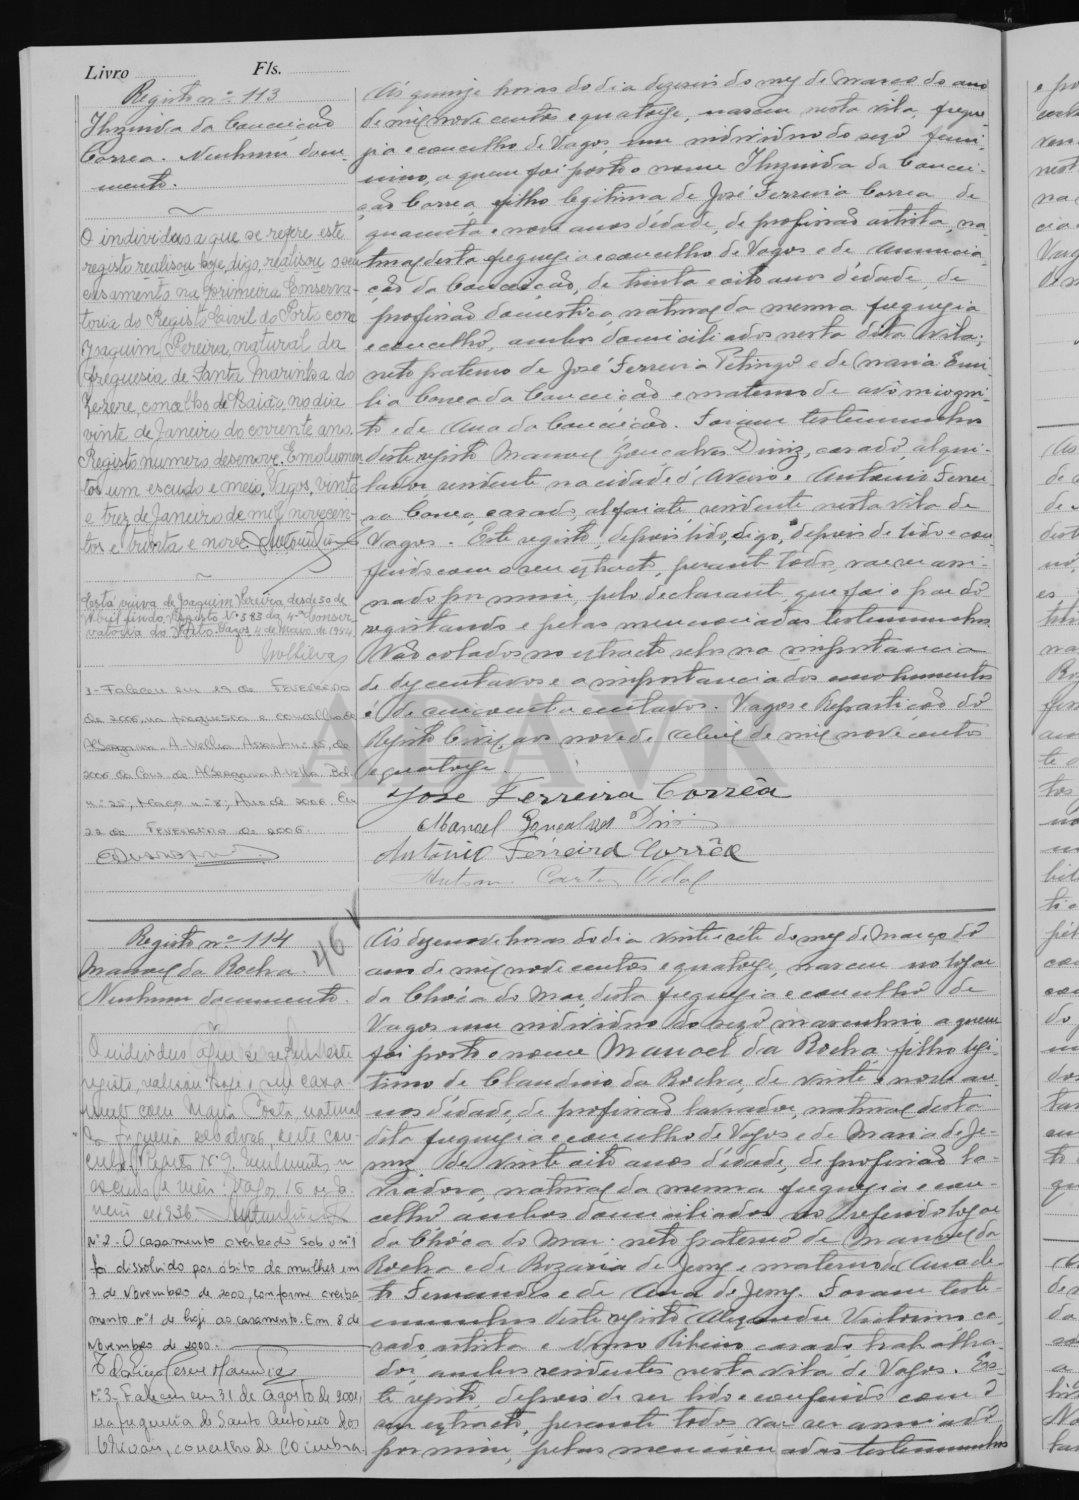 Livro Fls.
Registo nº 113
da Conceição
Correa. Nenhum docu-
mento.
O individuo a que se refere este
registo realisou hoje, digo, realisou o seu
casamento na primeira Conserva-
toria do Registo Civil do Porto com
Joaquim Pereira, natural da
freguesia de Santa Marinha do
Zezere, concelho de Baião, no dia
vinte de Janeiro do corrente ano.
Registo numero desenove. Emolumen-
tos um escudo e meio. Vagos, vinte
e trez de Janeiro de mil novecen-
tos e trinta e nove.
Está viuva de Joaquim Pereira desde 30 de
Abril findo. Registo Nº 383 da 4ª Conser-
vatoria do Porto. Vagos 4 de Maio de 1954
3 - Faleceu em 19 de Fevereiro
de 2006, na freguesia e concelho de
Albergaria-A-Velha. Assento nº 15, de
2006 da Cons. de Albergaria-A-Velha. Bol.
nº 25, Março nº 8, Ano de 2006. Em
22 de Fevereiro de 2006
Ás quinze horas do dia dezeseis do mez de Março do ano
de mil nove centos e quatorze, nasceu nesta vila, fregue-
zia e concelho de Vagos um individuo do sexo femi-
nino, a quem foi posto o nome da Concei-
ção Correa, filha legitima de José Ferreira Correa de
quarenta e nove anos d'edade, de profissão artista, na-
tural desta freguezia e concelho de Vagos e de Anuncia-
ção da Conceição, de trinta e oito anos d'edade, de
profissão domestica, natural da mesma freguezia
e concelho, ambos domiciliados nesta dita Vila;
neto paterno de José Ferreira Petingo e de Maria Emi-
lia Correa da Conceição e materno de avô incogni-
to e de Ana da Conceição. Foram testemunhas
deste registo Manoel Gonçalves Diniz, casado, alqui-
lador residente na cidade d'Aveiro e Antonio Ferrei-
ra Correa, casado, alfaiate, residente nesta vila de
Vagos. Este registo, depois lido, digo, depois de lido e con-
ferido com o seu extracto, perante todos, vae ser assi-
nado por mim, pelo declarante, que foi o pae do
registando e pelas mencionadas testemunhas.
Vão colados no extracto selos na importancia
de dez centavos e a importancia dos emolumentos
é de cincoenta centavos. Vagos e Repartição do
Registo Civil, aos nove de Abril de mil nove centos
e quatorze.
José Ferreira Corrêa
Manoel Gonçalves Diniz
António Ferreira Corrêa
Vidal
AD AVR
Registo nº 114
Manoel da Rocha.
Nenhum documento.
46
O individuo a que se refere este
registo, realisou hoje o seu casa-
mento com Maria Costa natural
da freguesia deste con-
celho. Registo Nº 9. Emolumentos um
escudo e meio. Vagos 16 de Ja-
neiro de 1936.
Nº 2 - O casamento averbado sob o nº 1
foi dissolvido por óbito da mulher em
7 de Novembro de 2000, conforme averba-
mento nº 1 de hoje ao casamento. Em 8 de
Novembro de 2000.
Nº 3 - Faleceu em 31 de Agosto de 2001,
na freguesia de Santo António dos
Olivais, concelho de Coimbra
Ás dezenove horas do dia vinte e sete do mez de Março do
ano de mil nove centos e quatorze, nasceu no logar
da Chóca do Mar, desta freguezia e concelho de
Vagos um individuo do sexo masculino a quem
foi posto o nome Manoel da Rocha, filho legi-
timo de Claudino da Rocha, de vinte e nove an-
nos d'edade, de profissão lavrador, natural desta
dita freguezia e concelho de Vagos e de Maria de Je-
sus, de vinte oito anos d'edade, de profissão la-
vradora, natural da mesma freguezia e con-
celho ambos domiciliados no referido logar
da Chóca do Mar: neto paterno de Manoel da
Rocha e de Rozaria de Jesus e materno de
Fernandes e de Ana de Jesus. Foram teste-
munhas deste registo Alexandre Victorino ca-
sado artista e Nuno Ribeiro casado trabalha-
dor, ambos residentes nesta vila de Vagos. Es-
te registo, depois de ser lido e conferido com o
seu extracto, perante todos vae ser assinado
por mim, pelas mencionadas testemunhas